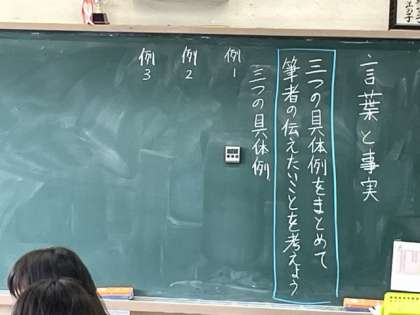 言葉と事実
三つの具体例をまとめて
筆者の伝えたいことを考えよう
三つの具体例
例1
例2
例3